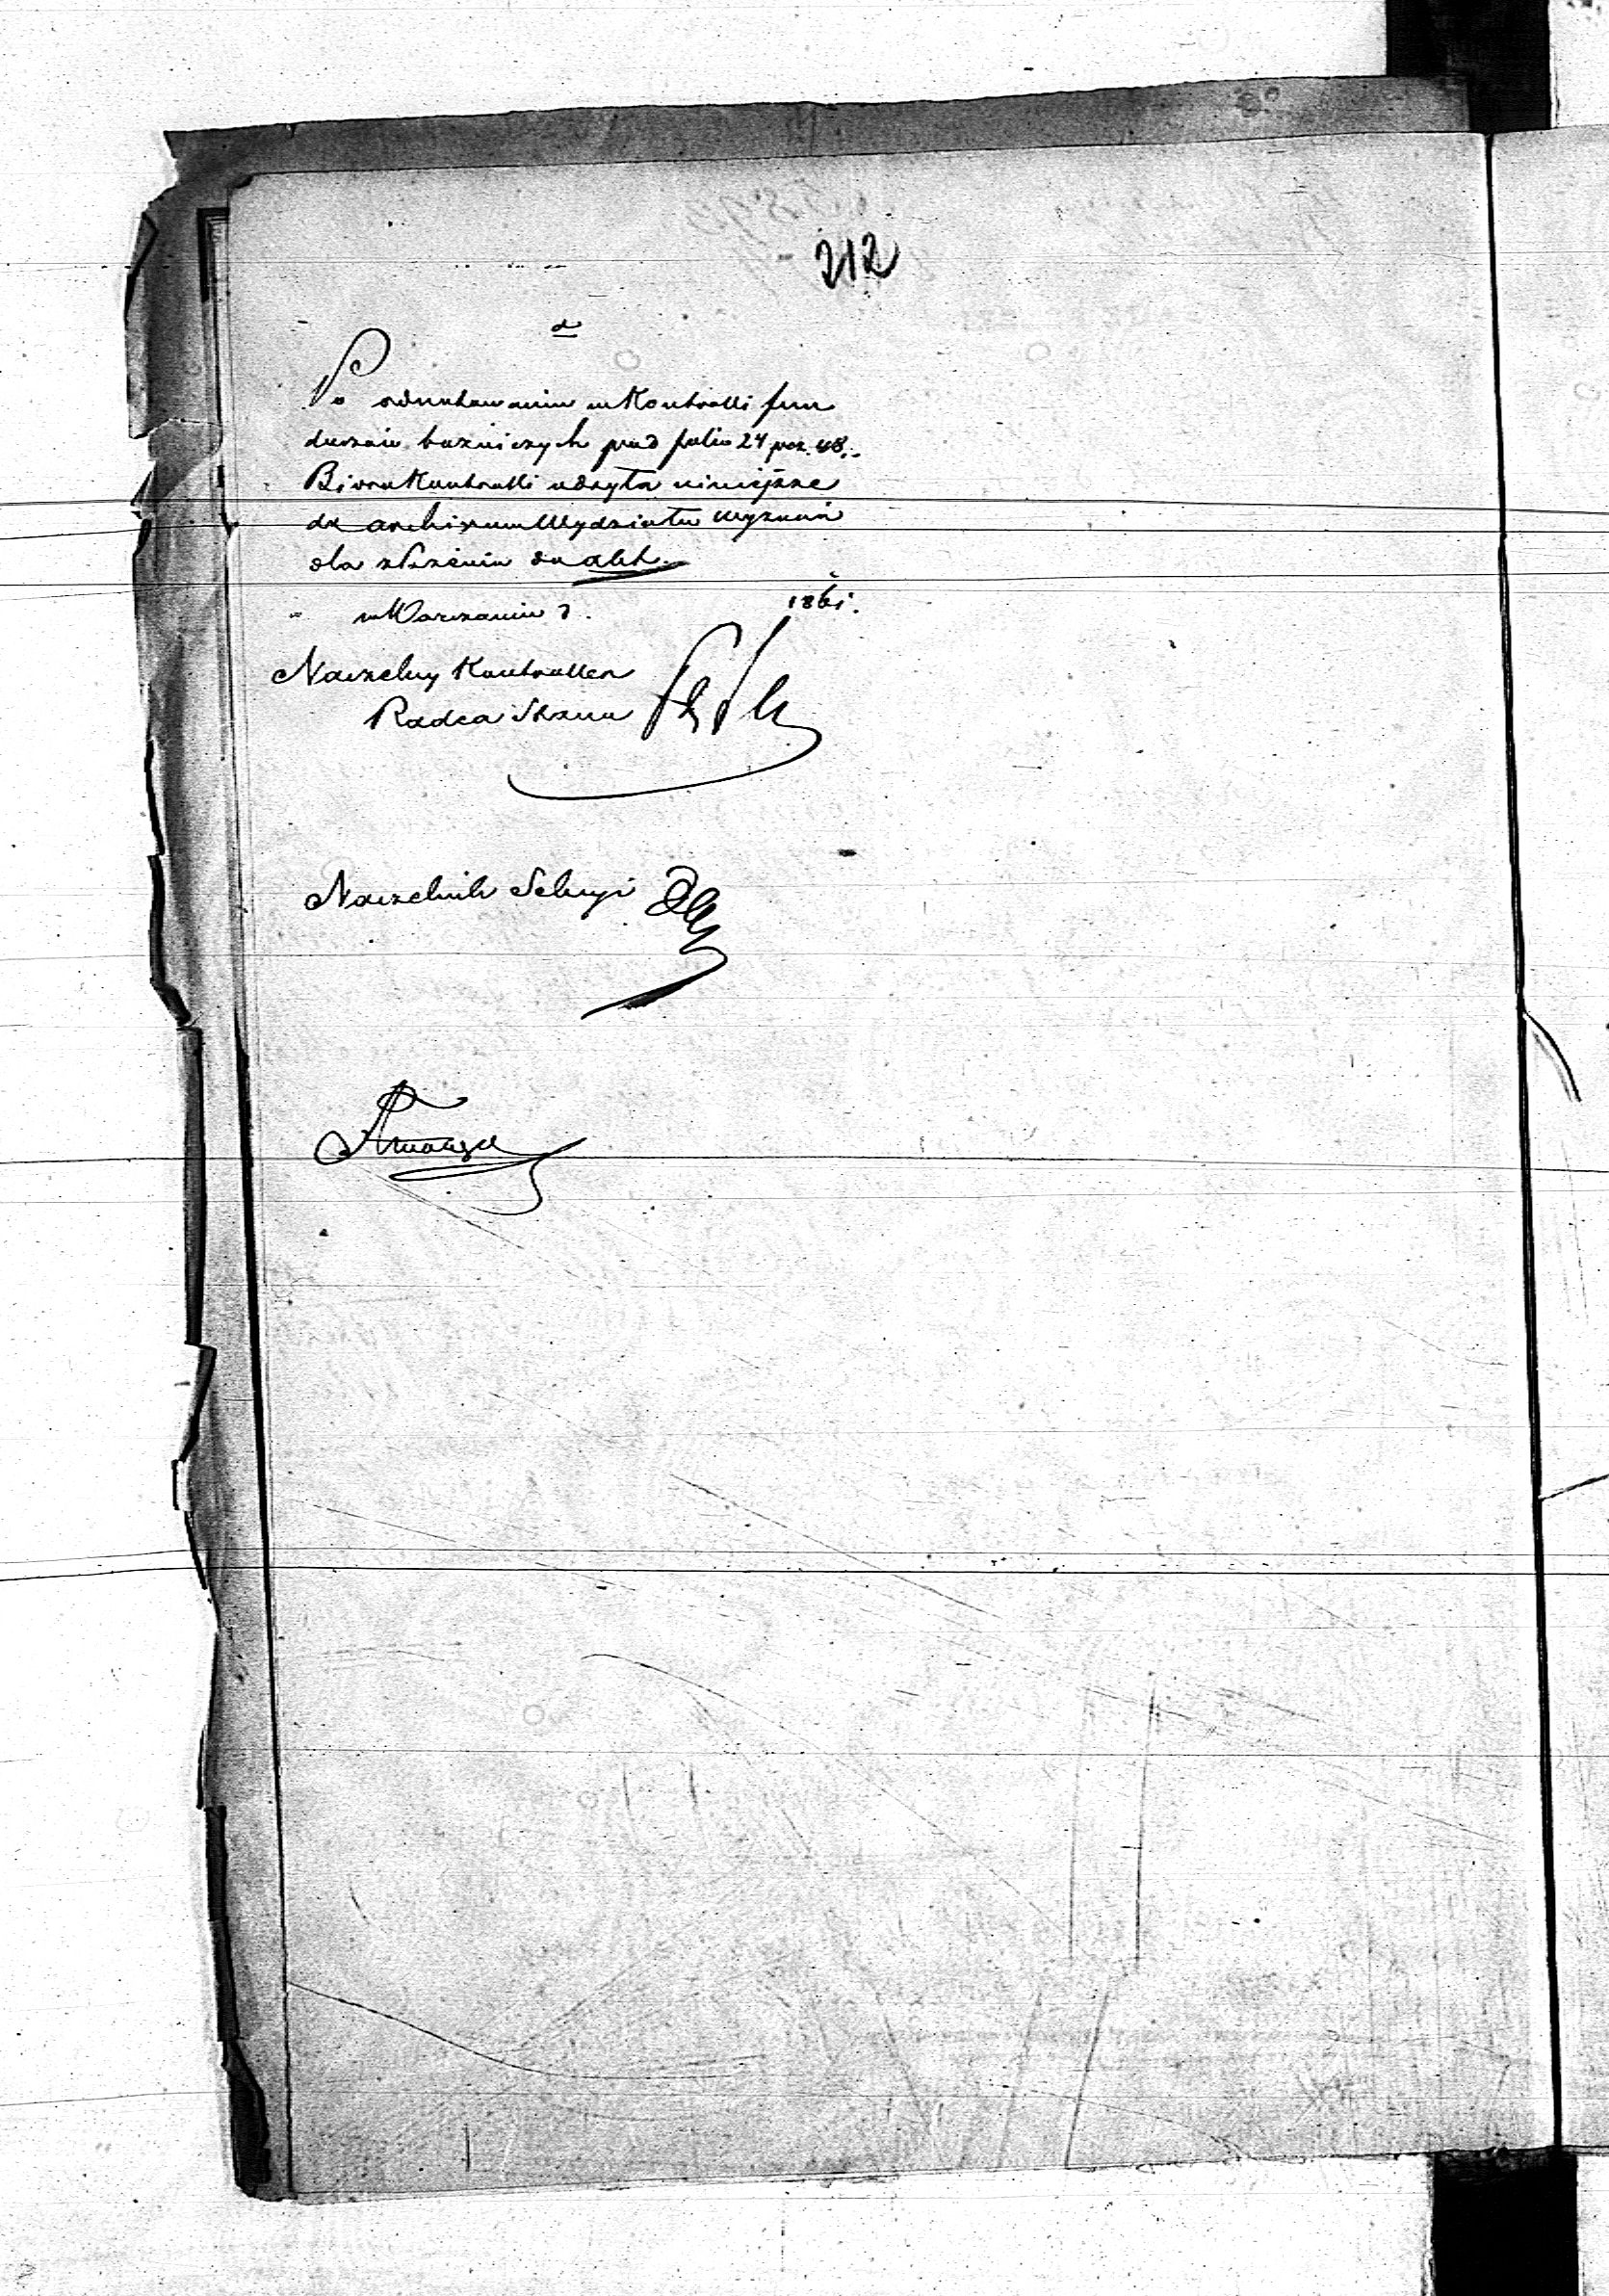 212
Po odnotowaniu w Kontrolli fun
duszów bożniczych pod folio 24 poz. 48.
Biuro Kontrolli odsyła niniejsze
do archiwum Wydziału Wyznań
dla złożenia do akt.
w Warszawie d. 1861.
Naczelny Kontroller
Radca Stanu
Naczelnik Sekcyi